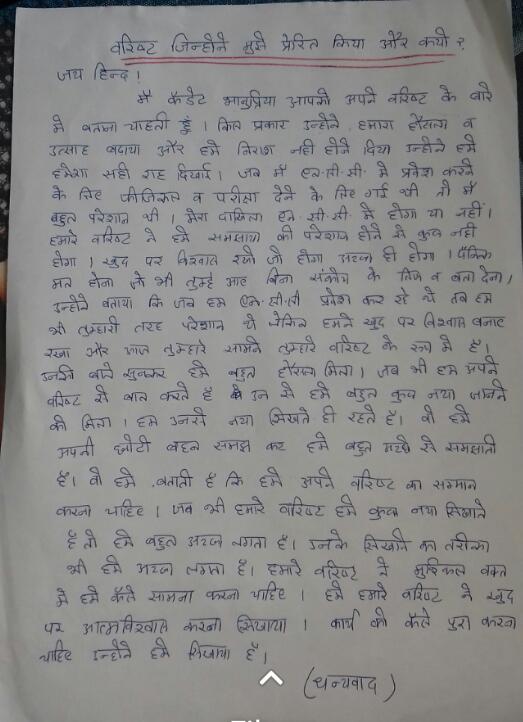 वरिष्ट जिन्होने मुझे प्रेरित किया और क्यो ?
जय हिन्द !
मैं कॅडेट भानुप्रिया आपको अपने वरिष्ट के बारे
मे बताना चाहती हुं । किस प्रकार उन्होने हमारा हौसला व
उत्साह बढाया और हमे निराश नही होने दिया उन्होने हमे
हमेशा सही राह दिखाई । जब मैं एन.सी.सी. मे प्रवेश करने
के लिए फीजिकल व परीक्षा देने के लिए गई थी तो मैं
बहुत परेशान थी । मेरा दाखिला एन.सी.सी. मे होगा या नहीं ।
हमारे वरिष्ट ने हमे समझाया की परेशान होने से कुछ नही
होगा । खुद पर विश्वास रखो जो होगा अच्छा ही होगा । पॅनिक
मत होना जो भी तुम्हे आए बिना संकोच के लिख व बता देना ।
उन्होने बताया कि जब हम एन.सी.सी प्रवेश कर रहे थे तब हम
भी तुम्हारी तरह परेशान थे लेकिन हमने खुद पर विश्वास बनाए
रखा और आज तुम्हारे सामने तुम्हारे वरिष्ट के रूप मे है।
उनकी बाते सुनकर हमे बहुत हौसला मिला । जब भी हम अपने
वरिष्ट से बात करते है उन से हमे बहुत कुछ नया जानने
को मिला । हम उनसे नया सिखते ही रहते है। वो हमे
अपनी छोटी बहन समझ कर हमे बहुत अच्छे से समझाती
है। वो हमे बताती है कि हमे अपने वरिष्ट का सम्मान
करना चाहिए । जब भी हमारे वरिष्ट हमे कुछ नया सिखाते
है तो हमे बहुत अच्छा लगता है। उनके सिखाने का तरीका
भी हमे अच्छा लगता है। हमारे वरिष्ट ने मुश्किल वक्त
मे हमे कैसे सामना करना चाहिए । हमे हमारे वरिष्ट ने खुद
पर आत्मविश्वास करना सिखाया । कार्य को कैसे पुरा करना
चाहिए उन्होने हमे सिखाया है।
(धन्यवाद)